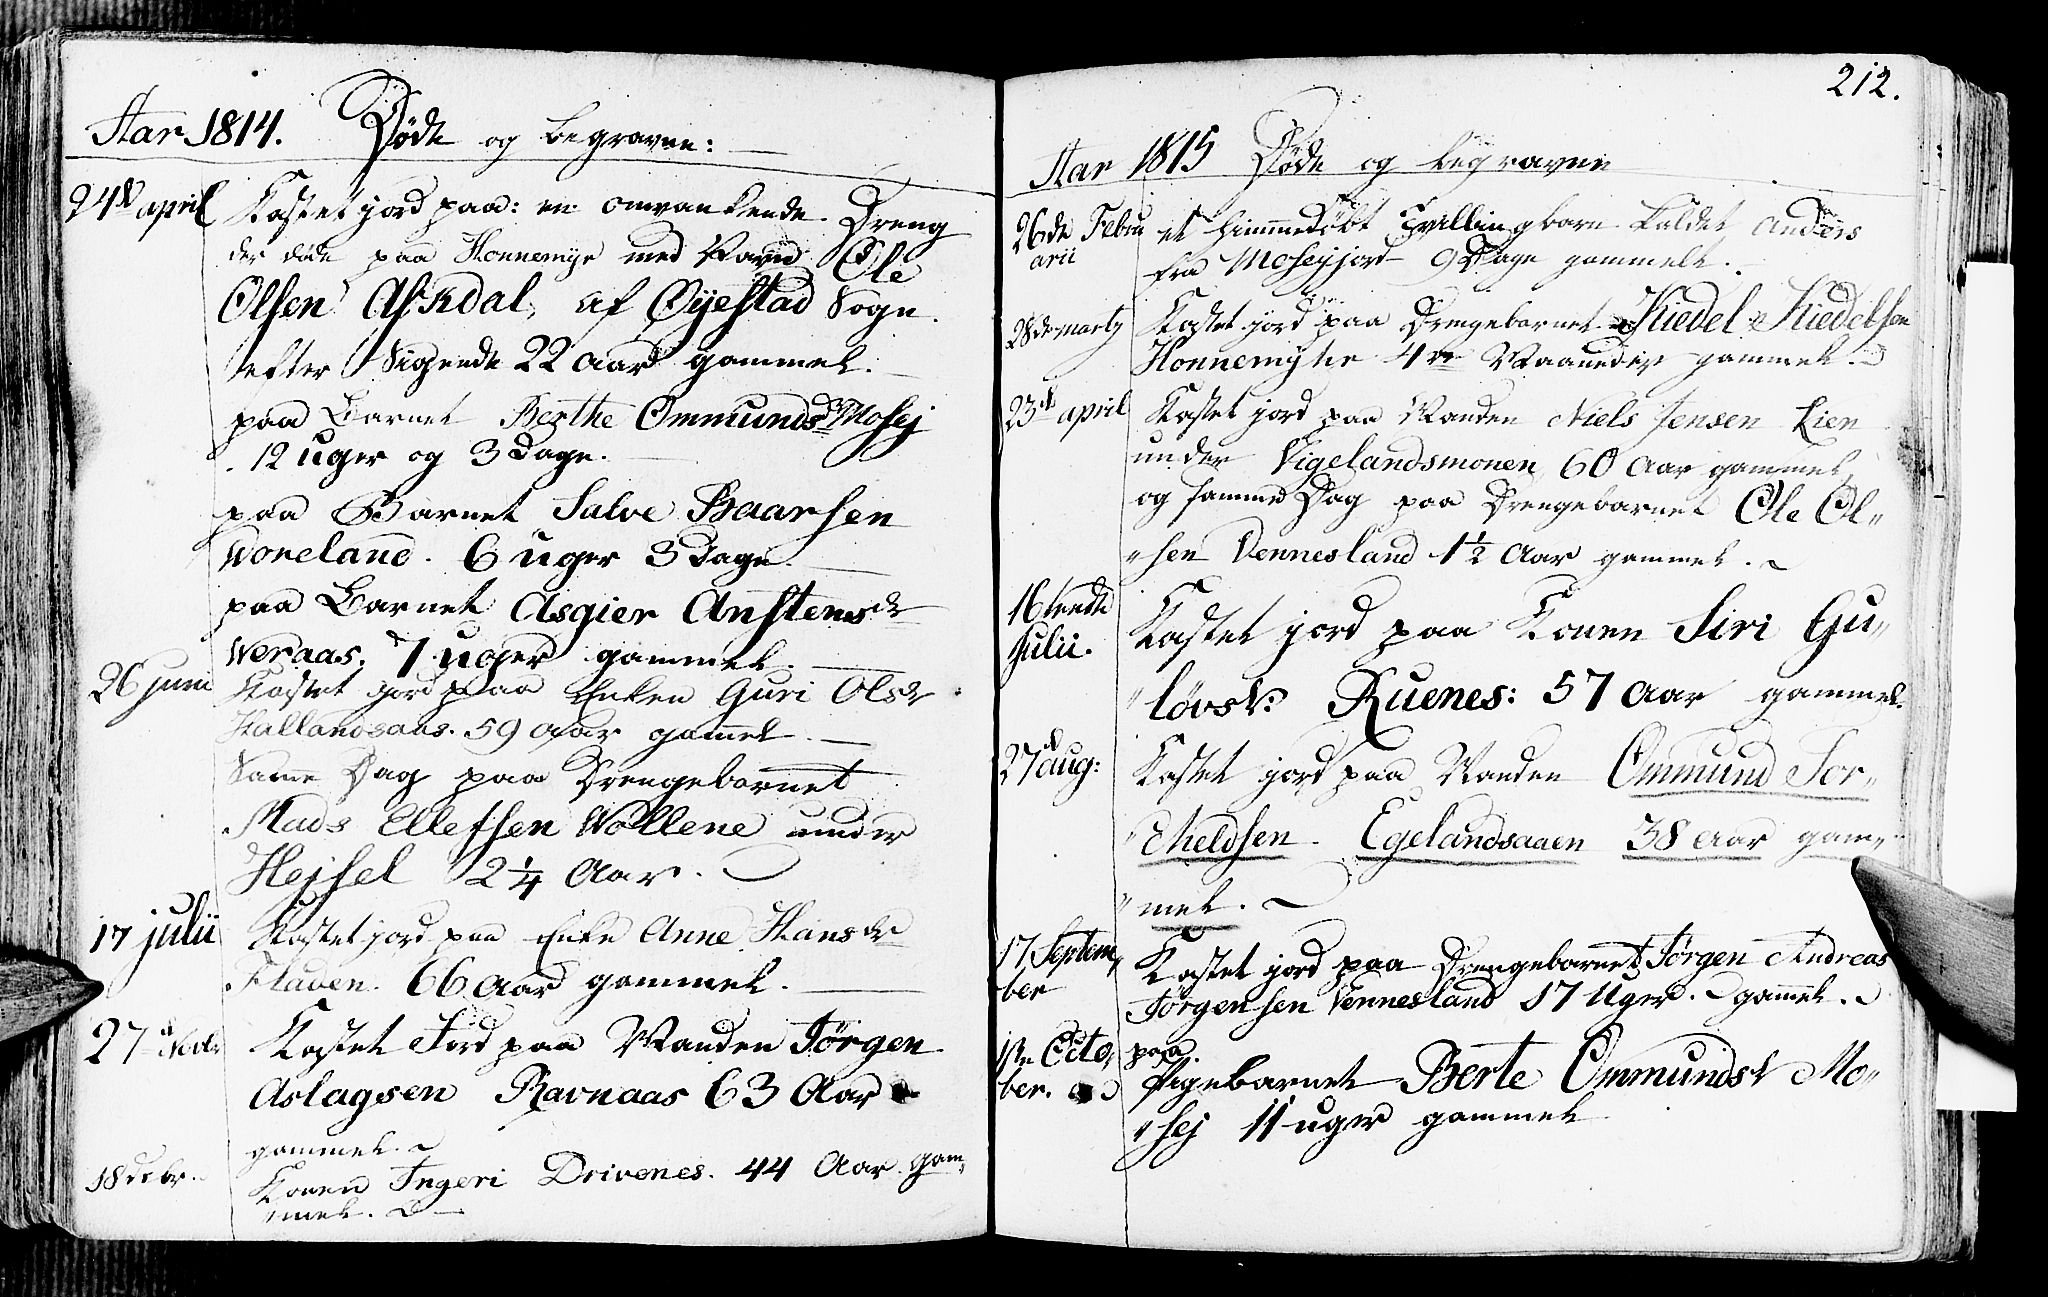 Aar 1814. Døde og begravne:
24d april Kastet jord paa: en omvankende Dreng
der døde paa Honnemyr med Navn Ole
Olsen Askdal, af Øyestad Sogn
efter Sigende 22 aar gammel.
paa Barnet Berthe Ommundsdr Mosej
12 uger og 3 Dage.
paa Barnet Salve Baarsen
Woreland. 6 uger 3 Dage.
paa Barnet Asgier Anstensdr
Weraas. 7 uger gammel.
26 juni Kastet jord paa Enken Guri Olsdr
Hallandsaas. 59 aar gammel.
Samme Dag paa Drengebarnet
Mads Ellefsen Wollene under
Hejsel 2 1/4 Aar.
17 julii Kastet jord paa Enke Anne Hansdr
Fladen. 66 Aar gammel.
27d Novbr Kastet Jord paa Manden Jørgen
Aslagsen Ravnaas 63 Aar
gammel.
18 debr. Konen Ingeri Drivenes. 44 Aar gam„
„mel.
212.
Aar 1815 Døde og begravne
26de Febru et himmedøbt Tvillingbarn kaldet Anders
arii fra Moseyjord 9 Dage gammelt.
28de martz Kastet jord paa Drengebarnet Kiedel Kiedelsen
Honnemyhr 4re Maaneder gammel.
23d april Kastet jord paa Manden Niels Jensen Lien
under Vigelandsmonen 60 Aar gammel
og samme Dag paa Drengebarnet Ole Ol„
„sen Vennesland 1 1/2 Aar gammel.
16tende Kastet jord paa Konen Siri Gu„
Julii.
„løvsd: Ruenes: 57 Aar gammel.
27d aug: Kastet jord paa Manden Ommund Tor„
„cheldsen. Egelandsaaen 38 Aar gam„
„mel.
17 Septem„ Kastet jord paa Drengebarnet Jørgen Andreas
ber Jørgensen Vennesland 17 Uger gammel.
1ste Octo„ paa
ber. Pigebarnet Berte Ommundsd Mo„
„sej 11 uger gammel